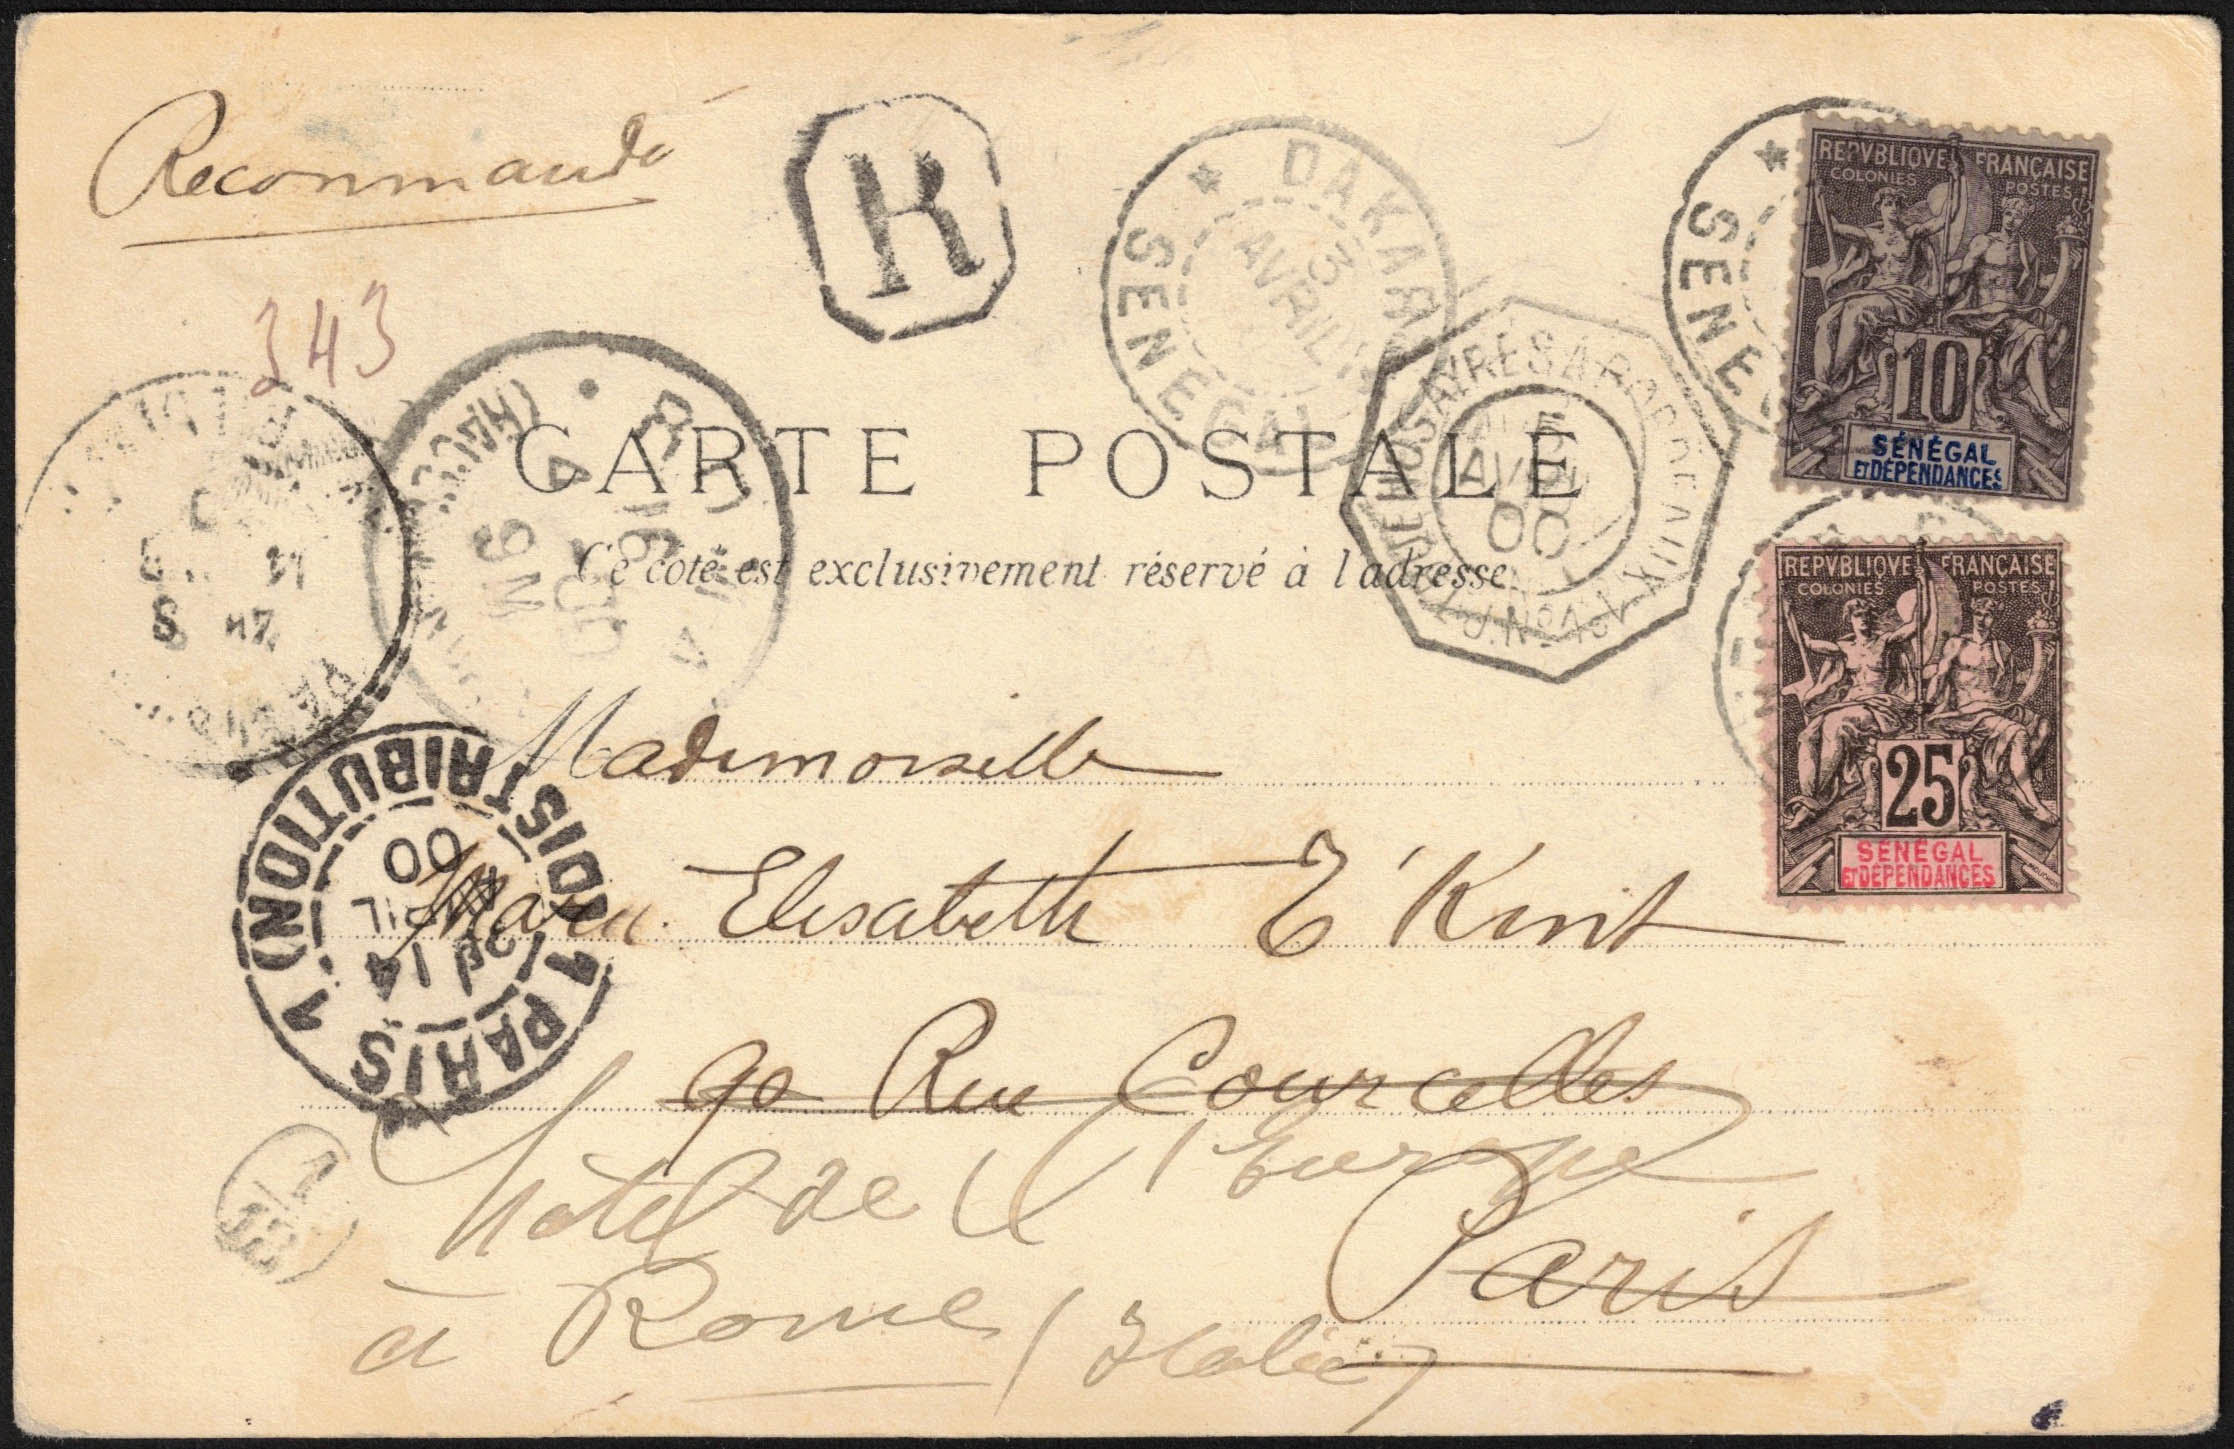 Recommandé
R
343
DAKAR
3
AVRIL
SENEGAL
REPVBLIQVE FRANÇAISE
COLONIES POSTES
10
SÉNÉGAL
ET DÉPENDANCES
BUENOS-AYRES A BORDEAUX
5
AVRIL
00
CARTE POSTALE
Ce côté est exclusivement réservé à l'adresse
REPVBLIQVE FRANÇAISE
COLONIES POSTES
25
SÉNÉGAL
ET DÉPENDANCES
ROMA
16
4
00
9M
PARIS 1 (DISTRIBUTION)
14
AVRIL
00
Mademoiselle
Marie Elisabeth T'Kint
90 Rue Courcelles
Paris
hôtel de l'Europe
à Rome (Italie)